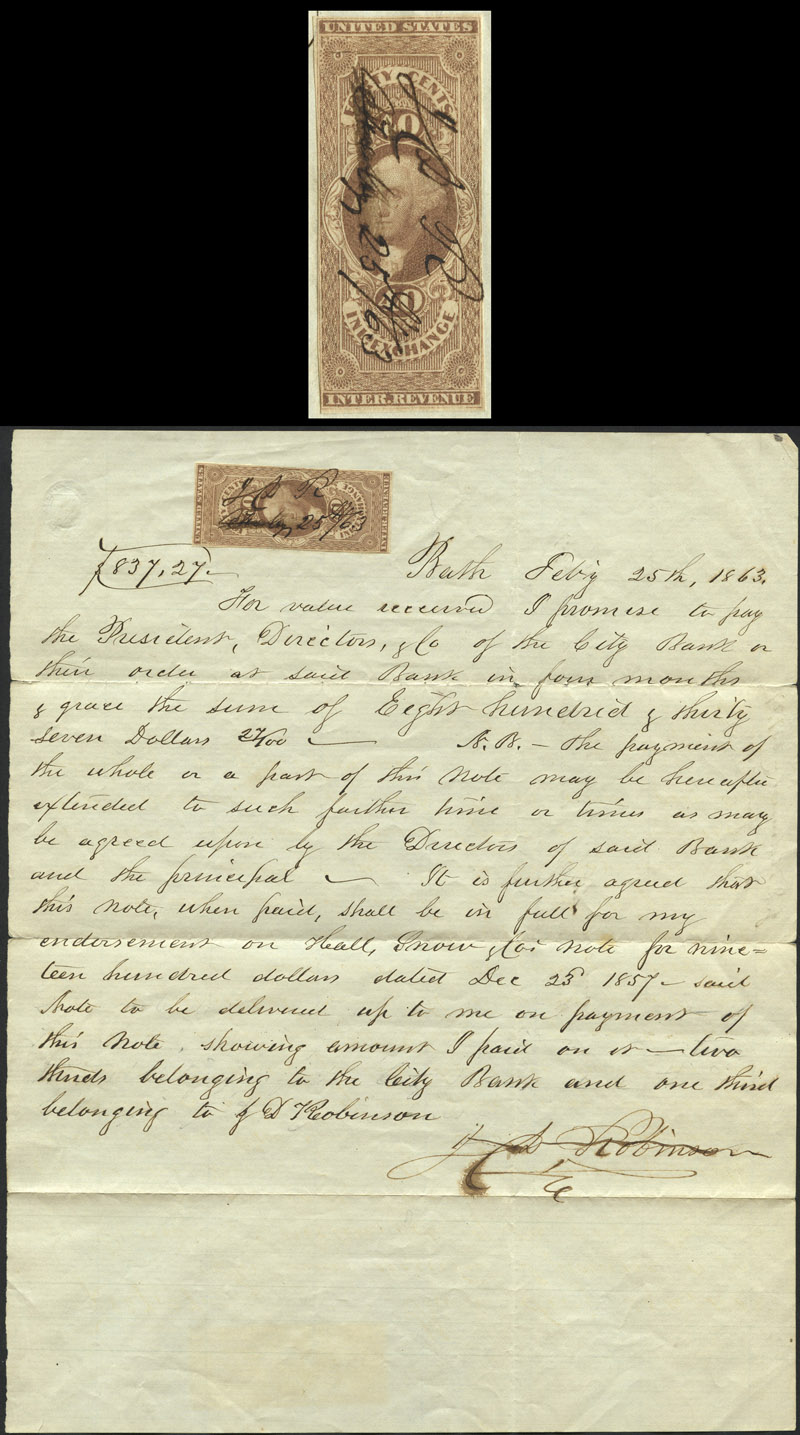 UNITED STATES
CENTS
40
J D R
25th/63
40
INL. EXCHANGE
INTER. REVENUE
UNITED STATES
J D R
25th/63
INTER. REVENUE
$837,27.
Bath Feb'y 25th, 1863.
For value received I promise to pay
the President, Directors, & Co of the City Bank or
their order at said Bank in four months
& grace the sum of Eight hundred & thirty
seven Dollars 27/00 N.B. - the payment of
the whole or a part of this Note may be hereafter
extended to such further time or times as may
be agreed upon by the Directors of said Bank
and the principal It is further agreed that
this note, when paid, shall be in full for my
endorsement on Hall, Snow & Co's note for nine=
teen hundred dollars dated Dec 23d 1857 - said
Note to be delivered up to me on payment of
this Note, showing amount I paid on it - two
thirds belonging to the City Bank and one third
belonging to J D Robinson
J D Robinson